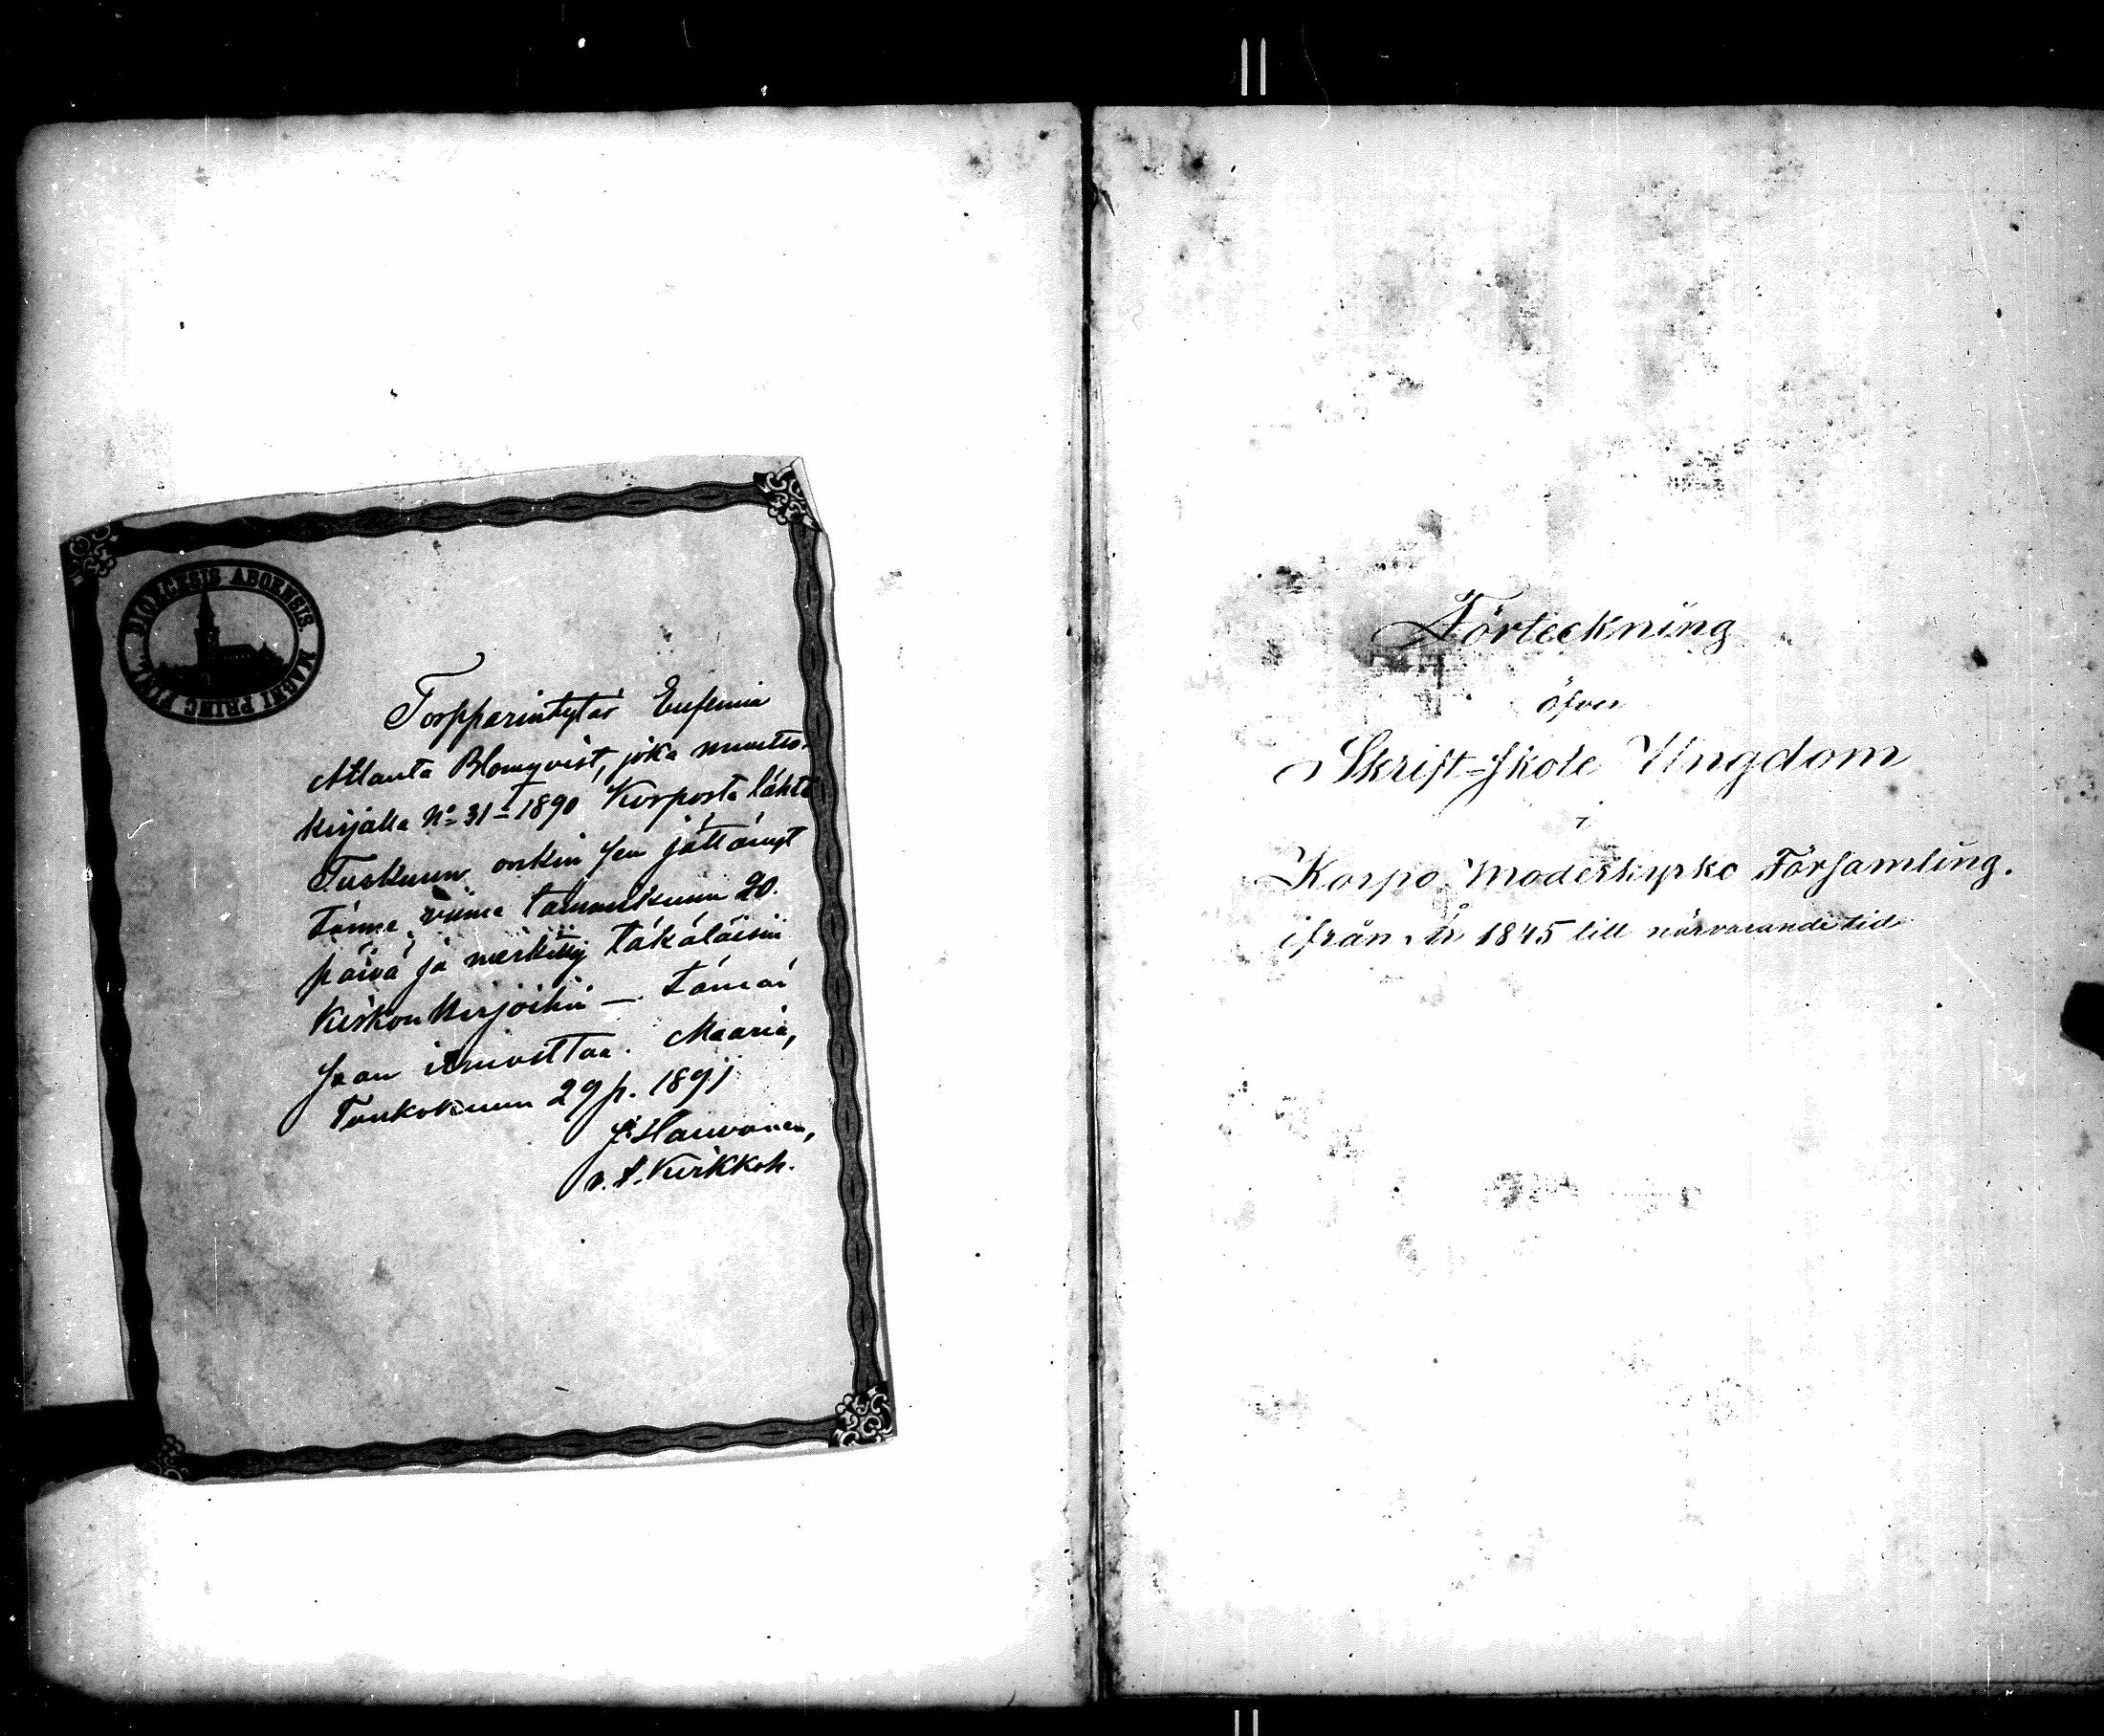 DIOECESIS ABOENSIS. MAGNI PRINC. FINL.
Torpparintytär Eufemia
Atlanta Blomqvist, joka muutto-
kirjalla No 31 - 1890 Korposta lähti
Turkuun onkin sen jättänyt
tänne viime tammikuun 20.
päivä ja merkitty täkäläisiin
Kirkonkirjoihin — tämän
saan ilmoittaa. Maaria,
Toukokuun 29 p. 1891
v. t. Kirkkoh.
Förteckning
öfver
Skrift-skole Ungdom
i
Korpo Moderkyrko Församling.
ifrån År 1845 till närvarande tid